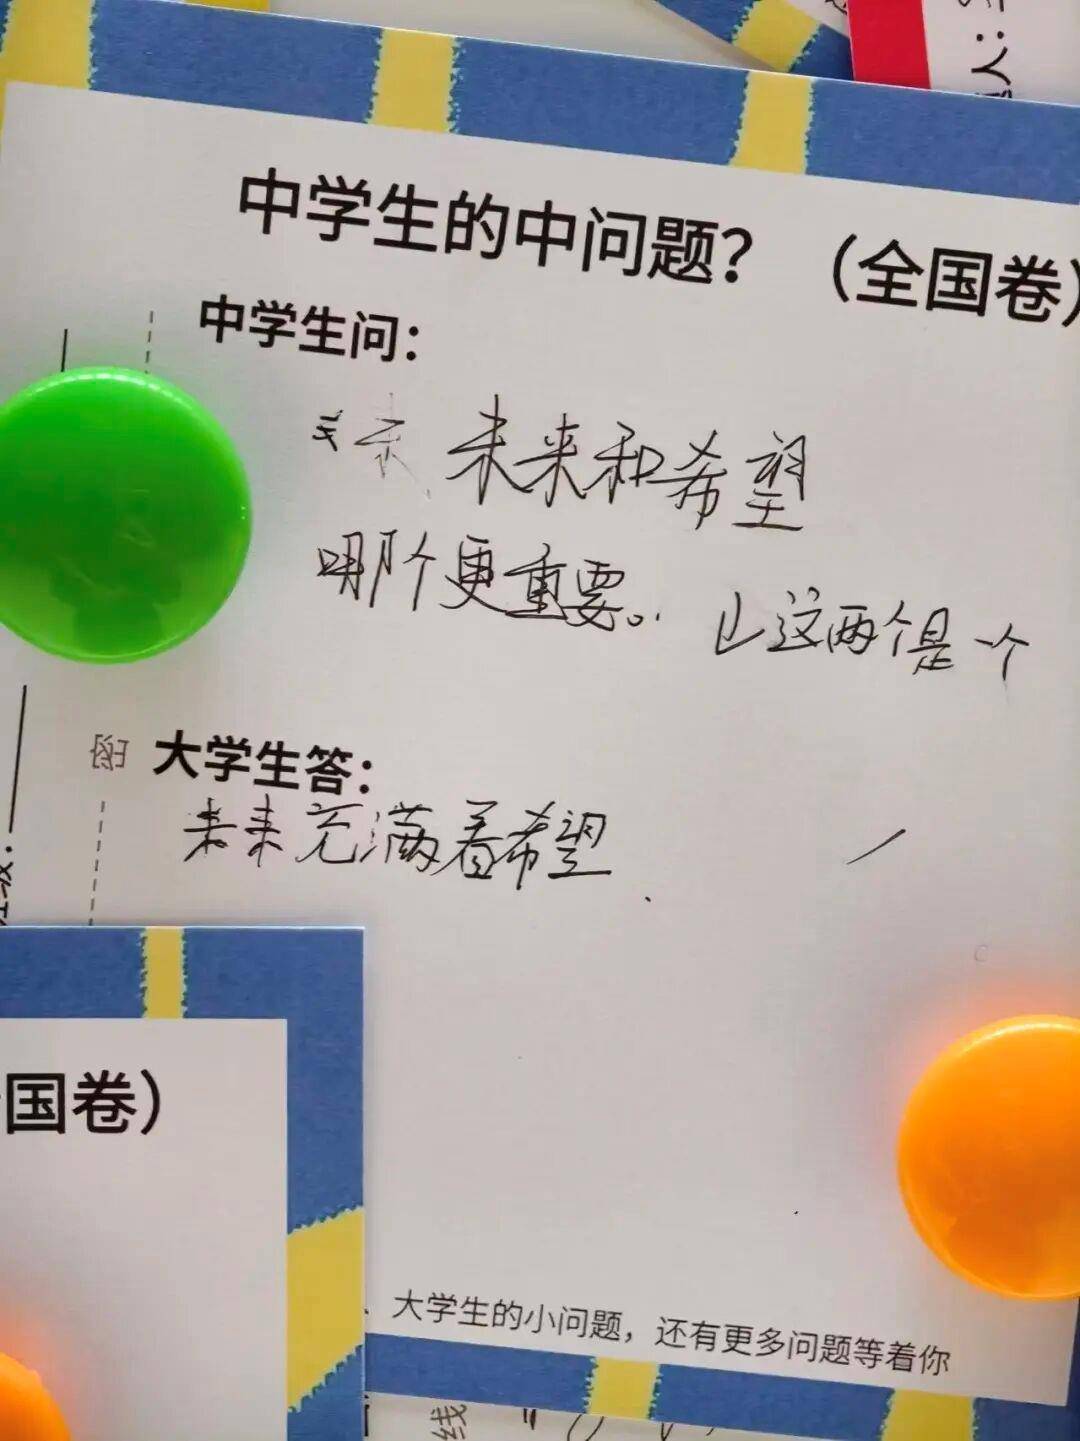 中学生的中问题？（全国卷）
中学生问：
未来和希望
哪个更重要。
这两个是一个
密
大学生答：
未来充满着希望
国卷）
大学生的小问题，还有更多问题等着你
线